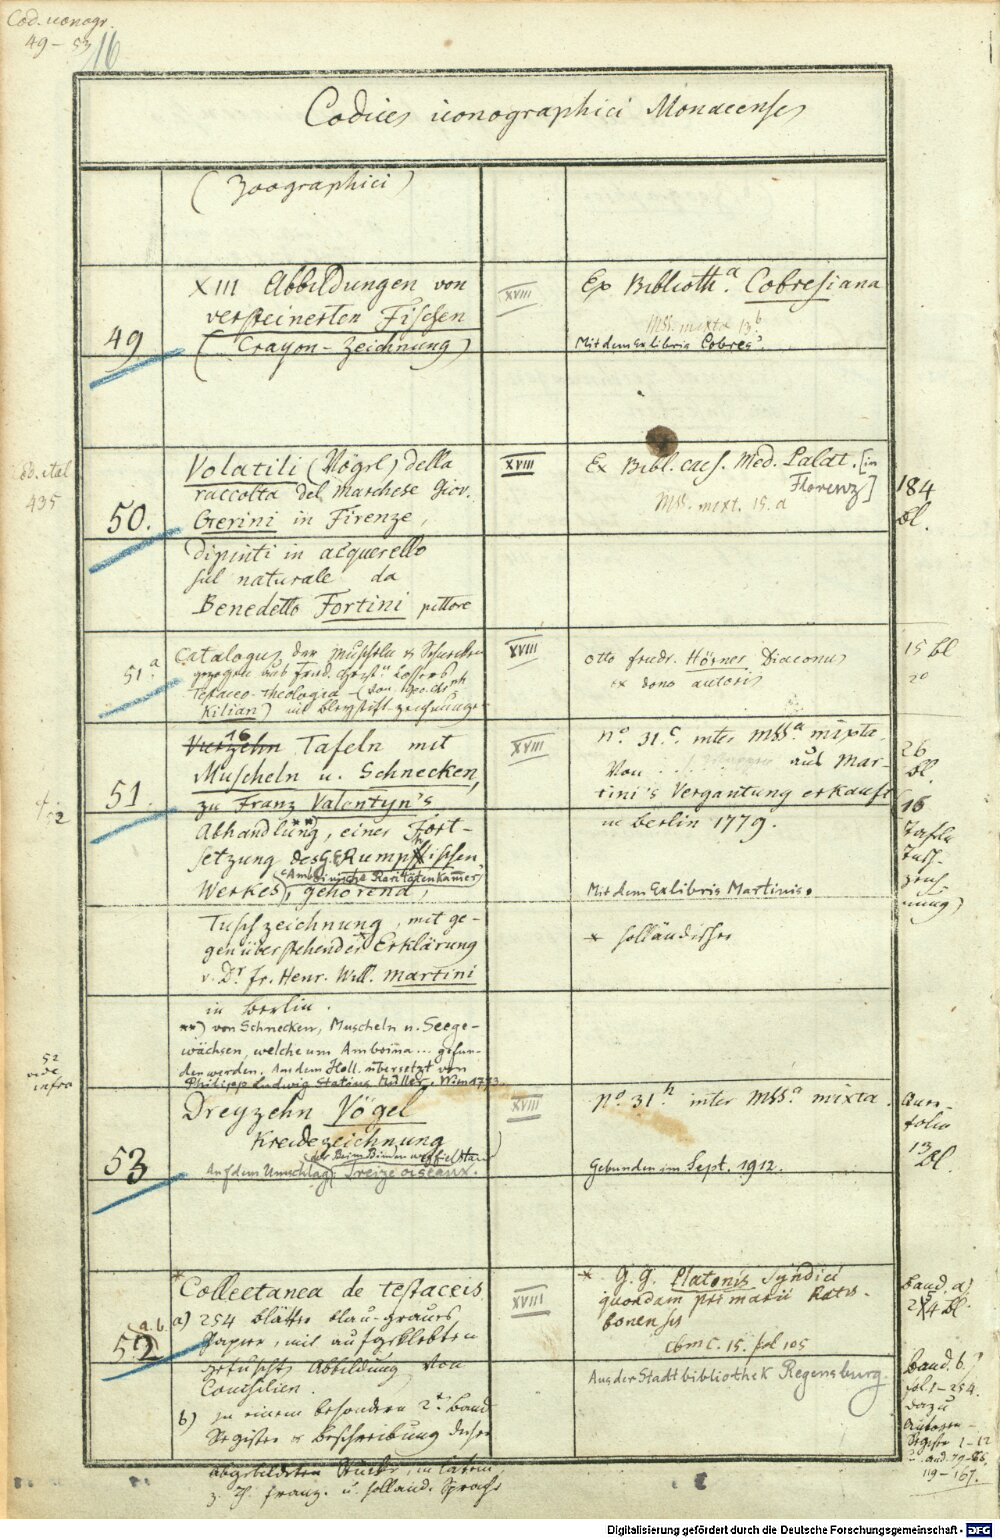 Cod. iconogr.
49-53
16
Codices iconographici Monacenses
(Zoographici)
49
XIII Abbildungen von
versteinerten Fischen
(Crayon-Zeichnung)
XVIII
Ex Biblioth.ª Cobresiana
Mss. mixta 13.b
Mit dem Exlibris Cobres'.
Cod. ital
435
50.
Volatili (Vögel) della
raccolta del Marchese Giov.
Gerini in Firenze,
dipinti in acquerello
sul naturale da
Benedetto Fortini pittore
XVIII
Ex Bibl. caes. Med. Palat. [in
Florenz]
Mss. mixt. 15. a
184
Bl.
51.a
Catalogus der Muscheln u. Schnecken
gezogen aus Fried. Christ.
Testaceo-Theologia (von
Kilian) mit Bleystift-Zeichnungen
XVIII
Otto Fridr. Hörner Diaconus
ex dono autoris
15 Bl
2º
51.
Vierzehn 16 Tafeln mit
Muscheln u. Schnecken,
zu Franz Valentyn's
Abhandlung**), einer Fort-
setzung des G. E. Rumpfischen
Werkes (Amboinische Raritätenkammer)
gehörend,
Tuschzeichnung, mit ge-
genüberstehender Erklärung
v. Dr. Fr. Henr. Will. Martini
in Berlin.
**) von Schnecken, Muscheln u. Seege-
wächsen, welche um Amboina... gefun-
den werden. Aus dem Holl. übersetzt von
Philipp Ludwig Statius Müller. Wien 1773.
XVIII
nº 31.c inter Mss.ª mixta.
Von aus Mar-
tini's Vergantung erkauft
in Berlin 1779.
Mit dem Exlibris Martinis.
* holländischer
26
Bl.
(16
Tafeln
Tusch-
zeich-
nung)
52
vide
infra
53
Dreyzehn Vögel
Kreidezeichnung
Auf dem Umschlag (der beim Binden wegfiel) Treize oiseaux.
XVIII
Nº 31h inter Mss.ª mixta.
Gebunden im Sept. 1912.
Quer-
folio
13 Bl.
52 a. b.
*Collectanea de testaceis
a) 254 Blätter blau-graues
Papier, mit aufgeklebten
getuschten Abbildung von
Conchilien.
b) in einem besondern 2t. Band
Register u. Beschreibung dieser
abgebildeten Stücke, in latein.
z. Th. franz. u. holland. Sprache
XVIII
* G. G. Platonis Syndici
quondam primarii Ratis-
bonensis
Cbm C. 15. fol 105
Aus der Stadtbibliothek Regensburg.
Band. a)
254 Bl.
Band. b.)
fol. 1-254.
Dazu
Autoren-
Register 1-12
u. and. 79-86,
119-167.
Digitalisierung gefördert durch die Deutsche Forschungsgemeinschaft - DFG